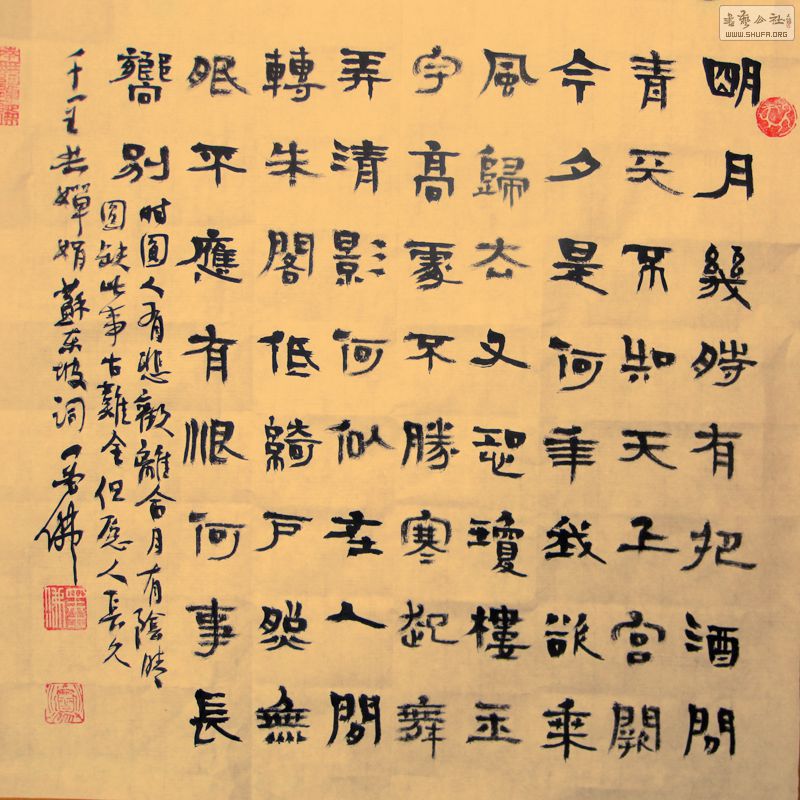 書藝公社
WWW.SHUFA.ORG
明月幾時有把酒問
青天不知天上宮闕
今夕是何年我欲乘
風歸去又恐瓊樓玉
宇高處不勝寒起舞
弄清影何似在人間
轉朱閣低綺戶照無
眠不應有恨何事長
嚮別
時圓人有悲歡離合月有陰晴
圓缺此事古難全但愿人長久
千里共嬋娟蘇東坡詞佛